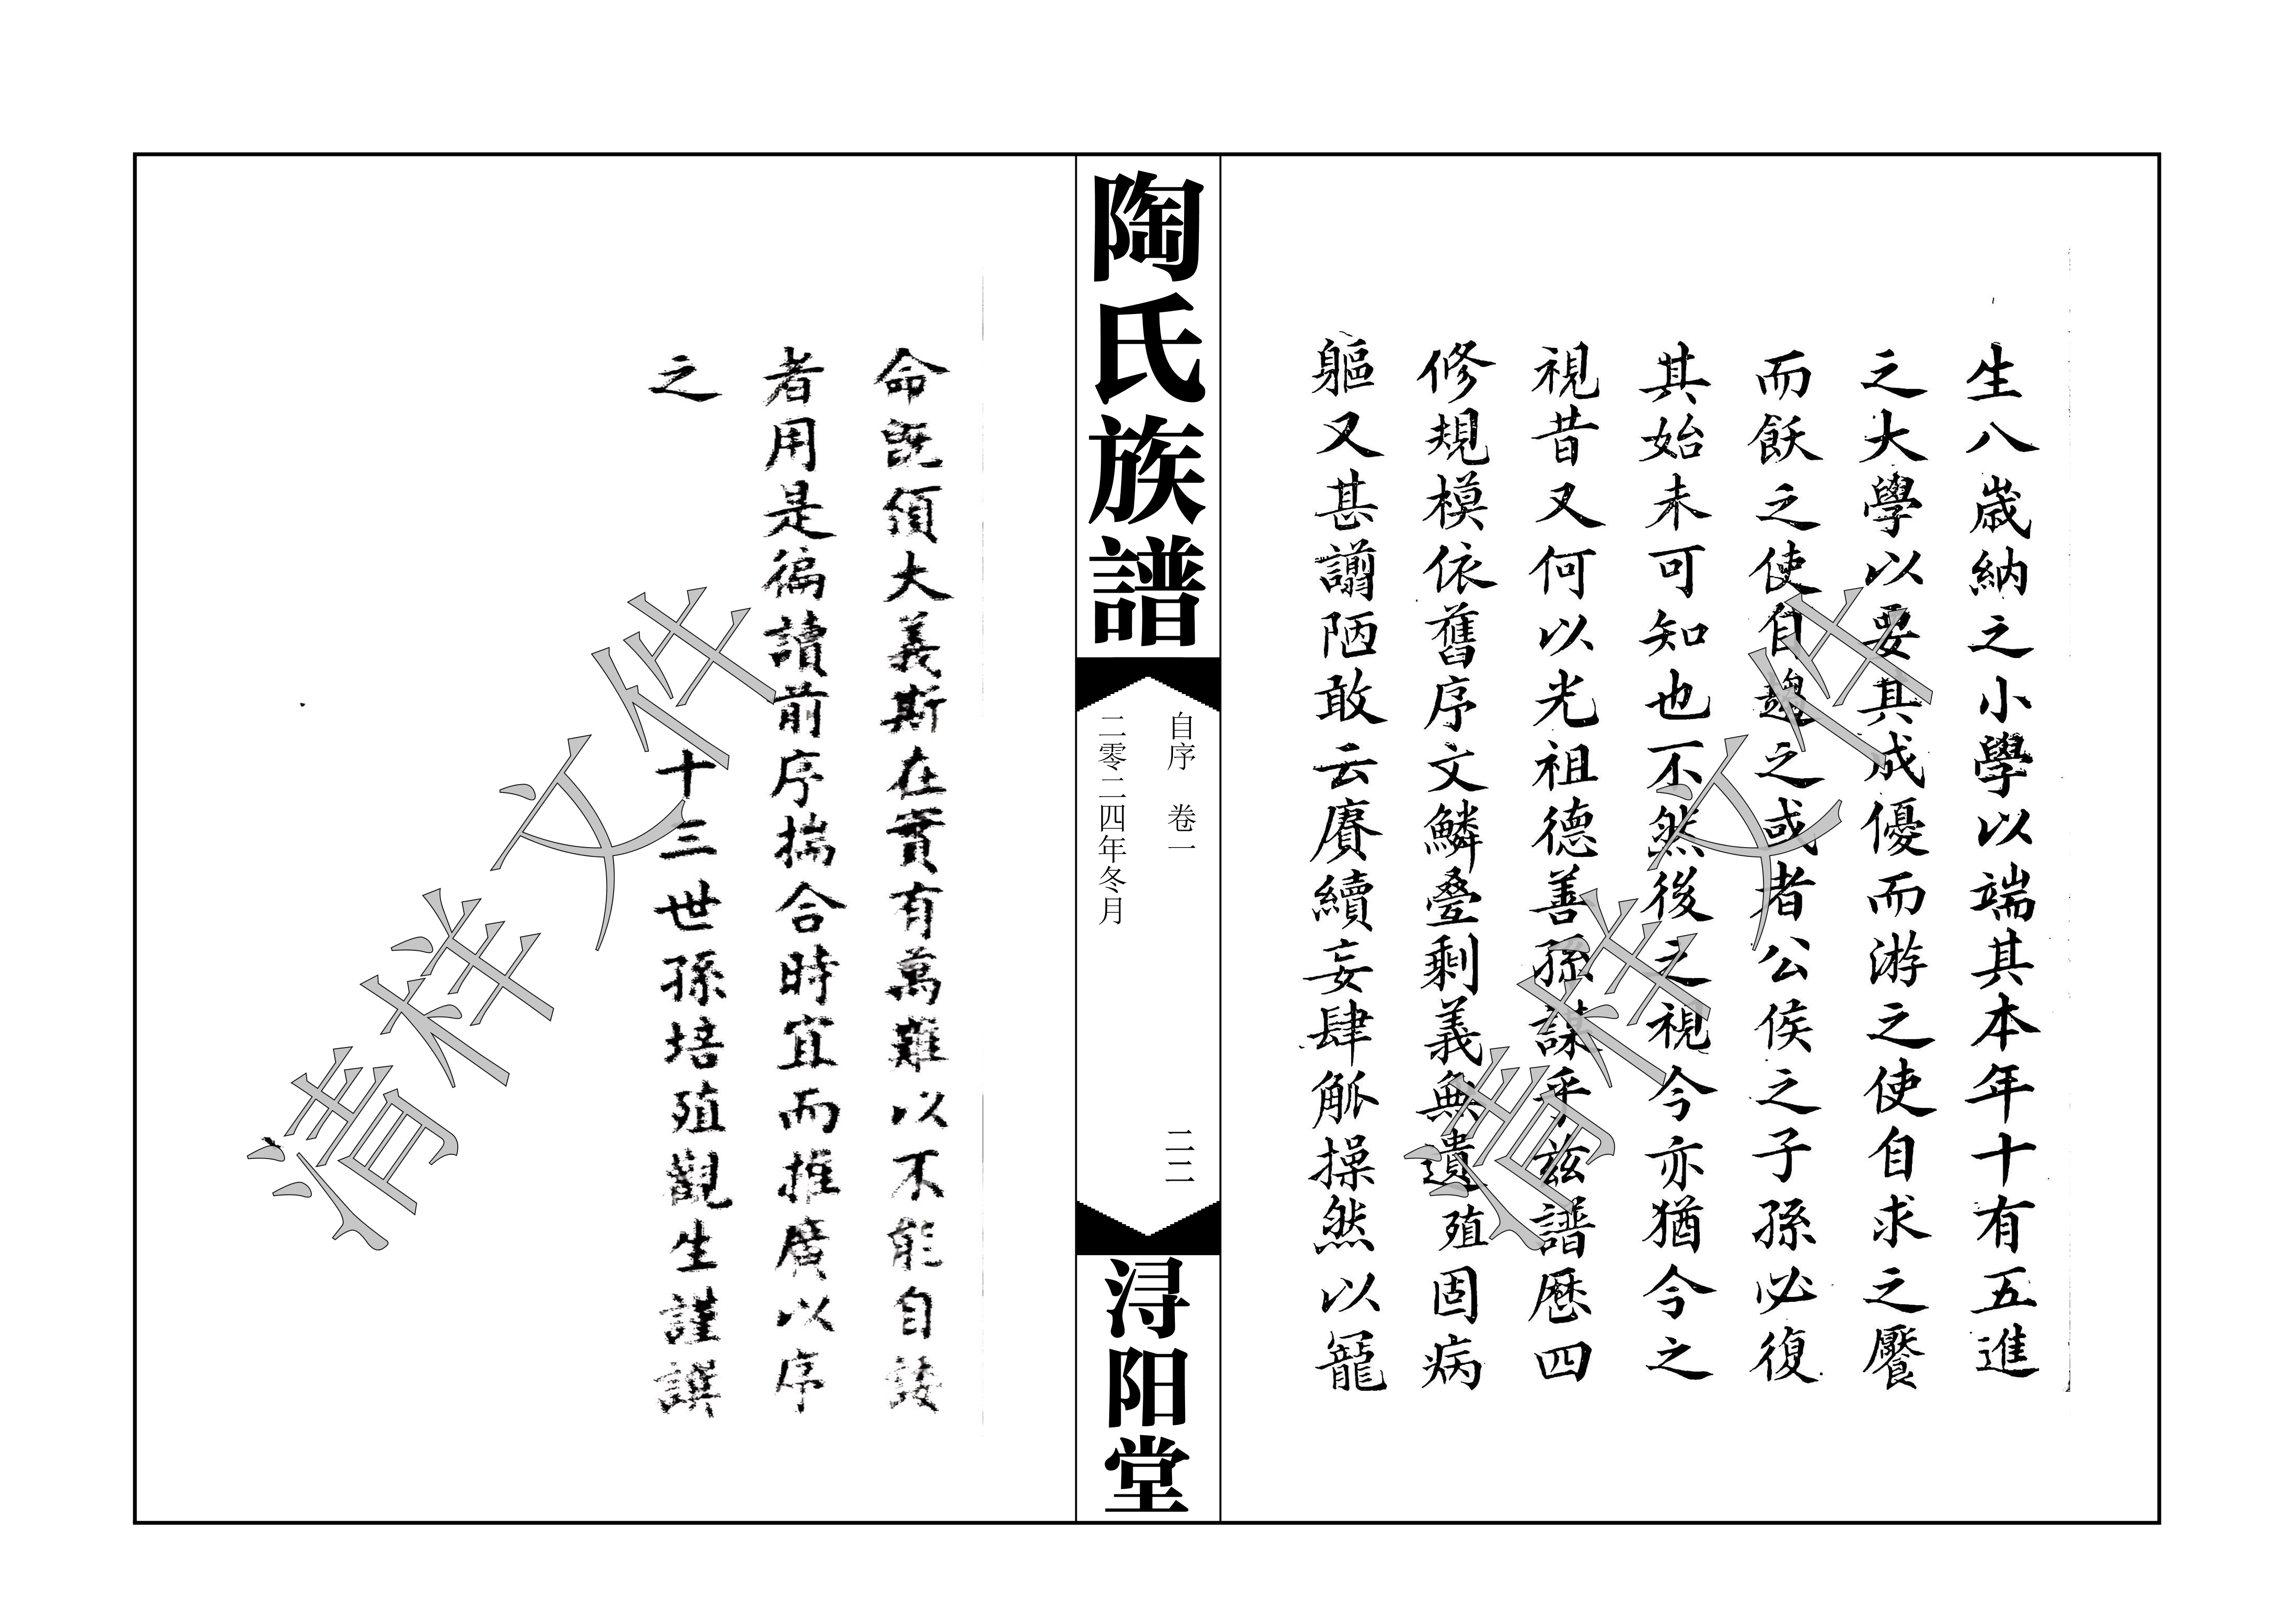 生八歲納之小學以端其本年十有五進
之大學以要其成優而游之使自求之饜
而飫之使自趨之或者公侯之子孫必復
其始未可知也不然後之視今亦猶今之
視昔又何以光祖德善孫謀乎茲譜歷四
修規模依舊序文鱗疊剩義無遺殖固病
軀又甚謭陋敢云賡續妄肆觚操然以寵
陶氏族譜
自序 卷一
二零二四年冬月
二二
浔阳堂
命既頒大義斯在實有萬難以不能自諉
者用是徧讀前序揣合時宜而推廣以序
之
十三世孫培殖觀生謹譔
清样文件
清样文件